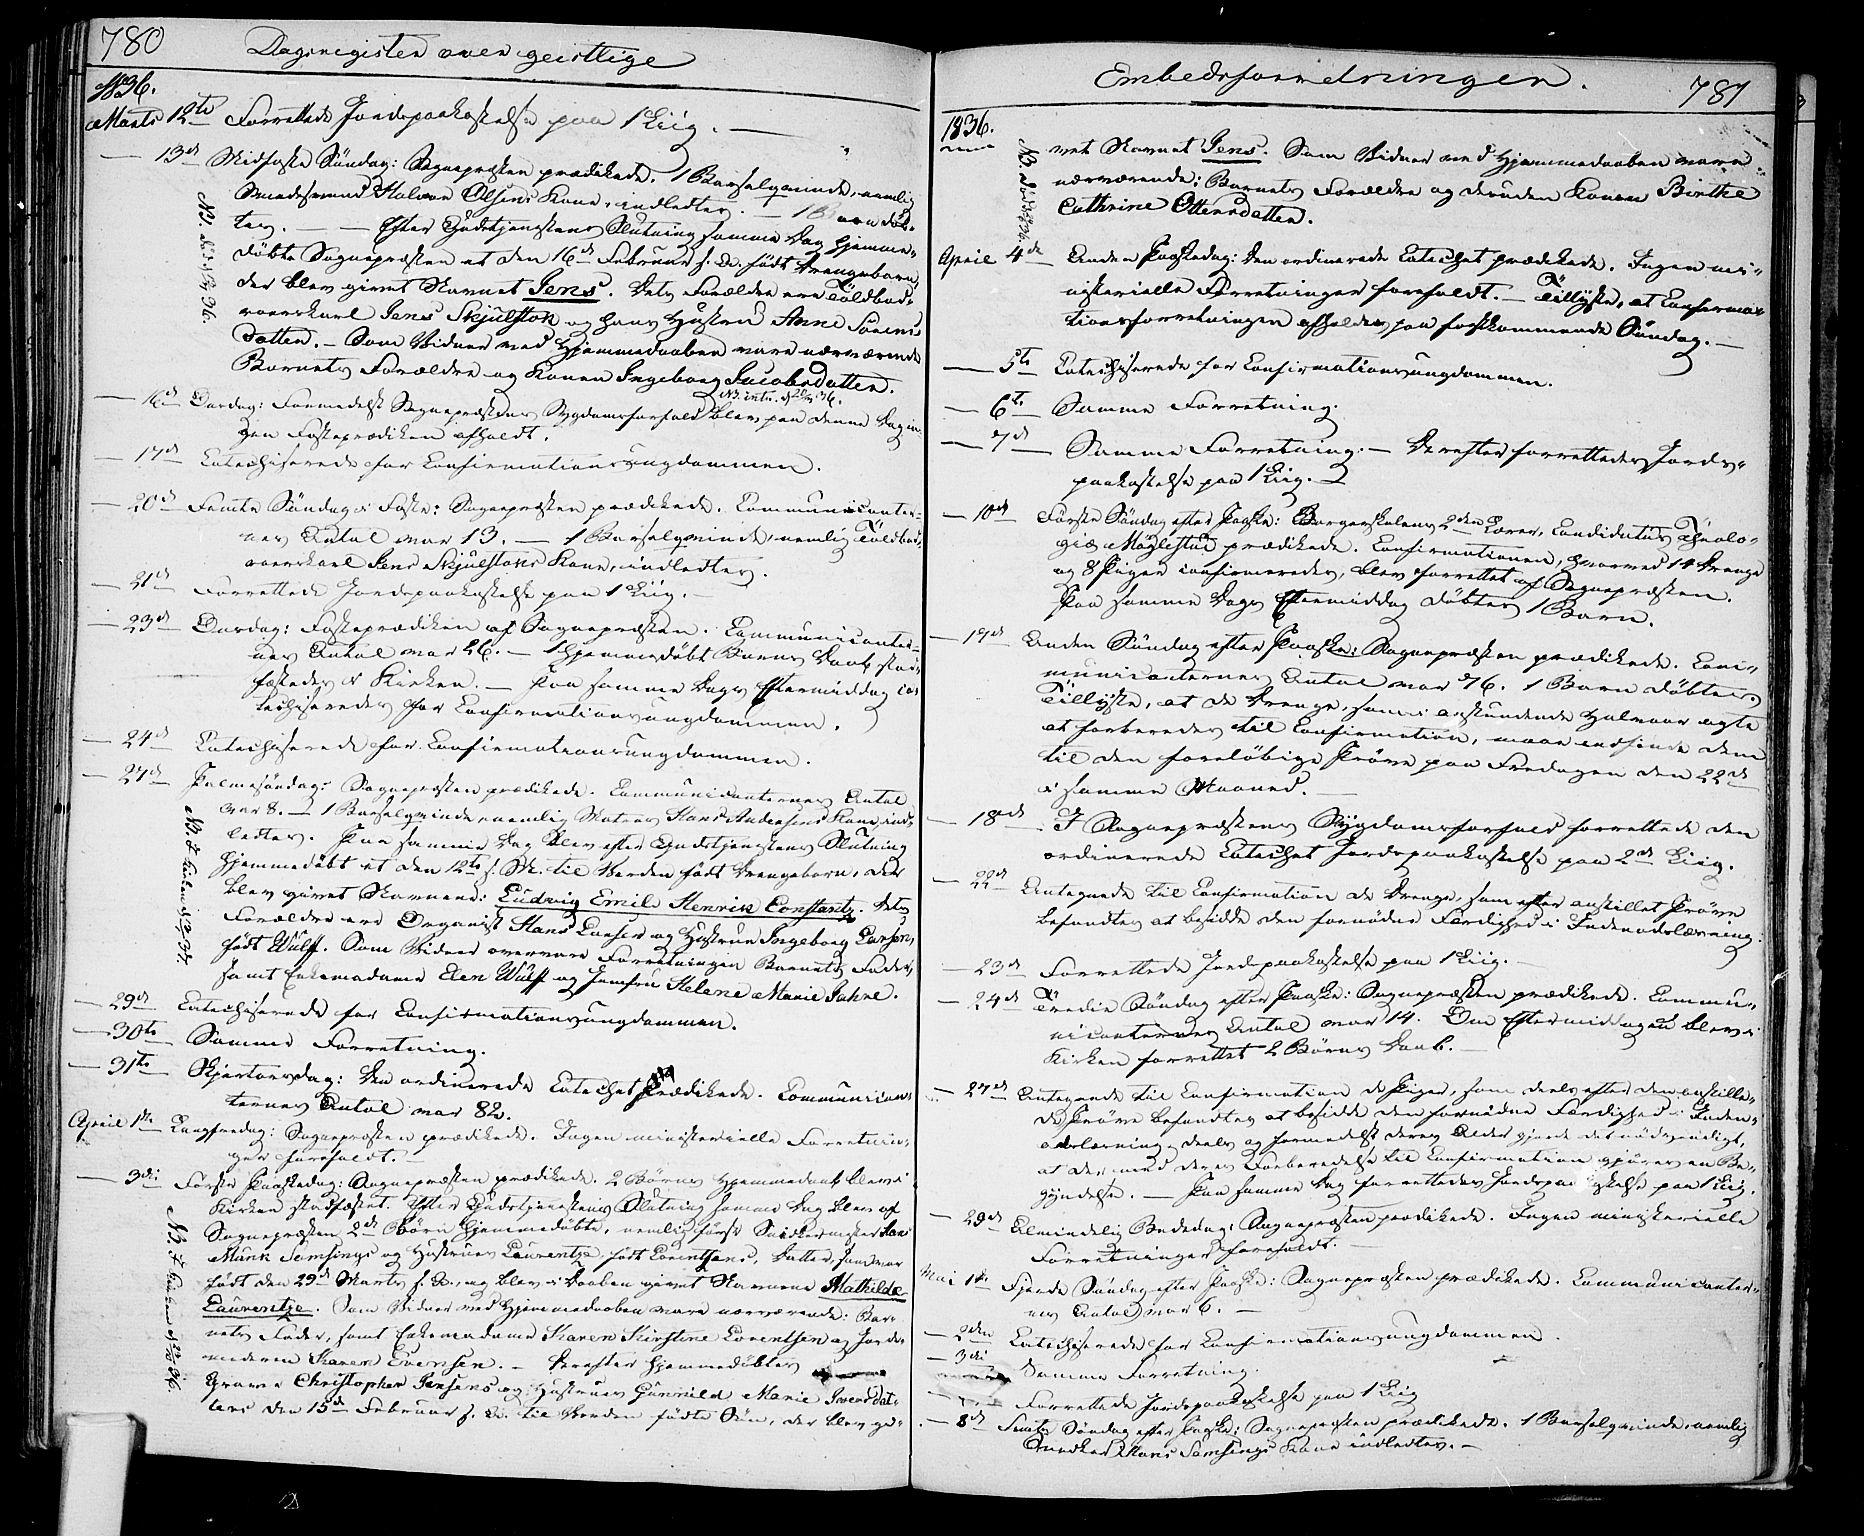 780
Dagsregister over geistlige
1836.
Marts 12te Forrettede Jordspaakastelse paa 1 Liig. —
— 13de Midfaste Søndag: Sognepræsten prædikede. 1 Barselqvinde, nemlig
Halvor Olsens Kone, indledtes. — 1 Barn døb-
tes. — Efter Gudstjenestens Slutning samme Dag hjemme-
døbte Sognepræsten et den 16de Februar s. A. født Drengebarn,
der blev givet Navnet Jens. Dets Forældre ere Toldbod-
roerskarl Jens Skjulstok og hans Hustru Anne Sørens-
datter. — Som Vidner ved Hjemmedaaben vare nærværende
Barnets Forældre og Konen Ingeborg Jacobsdatter.
— 16de Onsdag: Formedelst Sognepræstens Sygdomsforfald blev paa denne Dag in-
gen Fasteprædiken afholdt.
— 17de Catechiserede for Confirmationsungdommen.
— 20de Femte Søndag i Faste: Sognepræsten prædikede. Communicanter-
nes Antal var 13. — 1 Barselqvinde, nemlig Toldbod-
roerskarl Jens Skjulstoks Kone, indledtes.
— 21de Forrettede Jordspaakastelse paa 1 Liig. —
— 23de Onsdag: Fasteprædiken af Sognepræsten. Communicanter-
nes Antal var 26. — 1 hjemmedøbt Barns Daab stad-
fæstedes i Kirken. — Paa samme Dags Eftermiddag ca-
techiseredes for Confirmationsungdommen.
— 24de Catechiserede for Confirmationsungdommen.
— 27de Palmesøndag: Sognepræsten prædikede. Communicanternes Antal
var 8. — 1 Barselqvinde nemlig Matros Hans Andersens Kone, ind-
ledtes. Paa samme Dag blev efter Gudstjenestens Slutning
hjemmedøbt et den 12te s. M. til Verden født Drengebarn, der
blev givet Navnene: Ludvig Emil Henrik Constantz. Dets
Forældre ere Organist Hans Larsen og Hustru Ingeborg Larsen,
født Wulff. Som Vidner overvare Forretningen Barnets Fader,
samt Enkemadame Elen Wulff og Jomfru Helene Marie Jahne.
— 29de Catechiserede for Confirmationsungdommen.
— 30te Samme Forretning.
— 31te Skjertorsdag: Den ordinerede Catechet prædikede. Communican-
ternes Antal var 82.
April 1te Langfredag: Sognepræsten prædikede. Ingen ministerielle Forretnin-
ger forefaldt. —
— 3die Første Paaskedag: Sognepræsten prædikede. 2 Børns Hjemmedaab blev i
Kirken stadfæstet. Efter Gudstjenestens Slutning samme Dag blev af
Sognepræsten 2de Børn hjemmedøbte, nemlig først Snedkermester Hans
Munk Semsings og Hustrues Laurentze, født Lorentsens, Datter, som var
født den 29de Marts s. A., og blev i Daaben givet Navnene Mathilde
Laurentze. Som Vidner ved Hjemmedaaben vare nærværende: Bar-
nets Fader, samt Enkemadame Karen Kirstine Lorentsen og Jorde-
moderen Karen Evensen. — Derefter hjemmedøbtes
Christopher Jensens og Hustrues Gunnild Marie Iversdat-
ters den 15de Februar s. A. til Verden fødte Søn, der blev gi-
Embedsforretninger.
781
1836.
vet Navnet Jens. Som Vidner ved Hjemmedaaben vare
nærværende: Barnets Forældre og desuden Konen Birthe
Cathrine Ottersdatter.
April 4de Anden Paaskedag: Den ordinerede Catechet prædikede. Ingen mi-
nisterielle Forretninger forefaldt. — Tillyste, at Confirma-
tionsforretningen afholdes paa førstkommende Søndag. —
— 5te Catechiserede for Confirmationsungdommen.
— 6te Samme Forretning.
— 7de Samme Forretning. — Derefter forrettedes Jords-
paakastelse paa 1 Liig. —
— 10de Første Søndag efter Paaske: Borgerskolens 2den Lærer, Candidatus Theolo-
giæ Møglestad prædikede. Confirmationen, hvorved 14 Drenge
og 8 Piger confirmeredes, blev forrettet af Sognepræsten.
Paa samme Dags Eftermiddag døbtes 1 Barn.
— 17de Anden Søndag efter Paaske: Sognepræsten prædikede. Com-
municanternes Antal var 76. 1 Barn døbtes.
Tillyste, at de Drenge, som i anstundende Halvaar agte
at forberedes til Confirmation, maae indfinde dem
til den foreløbige Prøve paa Fredagen den 22de
i samme Maaned. —
— 18de I Sognepræstens Sygdomsforfald forrettede den
ordinerede Catechet Jordspaakastelse paa 2de Liig.
— 22de Antegnede til Confirmation de Drenge, som efter anstillet Prøve
befandtes at besidde den fornødne Færdighed i Indenadslæsning.
— 23de Forrettede Jordspaakastelse paa 1 Liig. —
— 24de Tredie Søndag efter Paaske: Sognepræsten prædikede. Commu-
nicanternes Antal var 14. Om Eftermiddagen blev i
Kirken forrettet 2 Børns Daab. —
— 27de Antegnede til Confirmation de Piger, som deels efter den anstille-
de Prøve befandtes at besidde den fornødne Færdighed i Inden-
adslæsning, deels og formedelst deres Alder gjorde det nødvendigt,
at der med deres Forberedelse til Confirmation gjøres en Be-
gyndelse. — Paa samme Dag forrettedes Jordspaakastelse paa 1 Liig.
— 29de Almindelig Bededag: Sognepræsten prædikede. Ingen ministerielle
Forretninger forefaldt. —
Mai 1te Fjerde Søndag efter Paaske: Sognepræsten prædikede. Communicanter-
nes Antal var 6. —
— 2den Catechiserede for Confirmationsungdommen.
— 3die Samme Forretning.
Forrettede Jordspaakastelse paa 1 Liig
— 8de Femte Søndag efter Paaske: Sognepræsten prædikede. 1 Barselqvinde, nemlig
Snedker Hans Semsings Kone indledtes. —